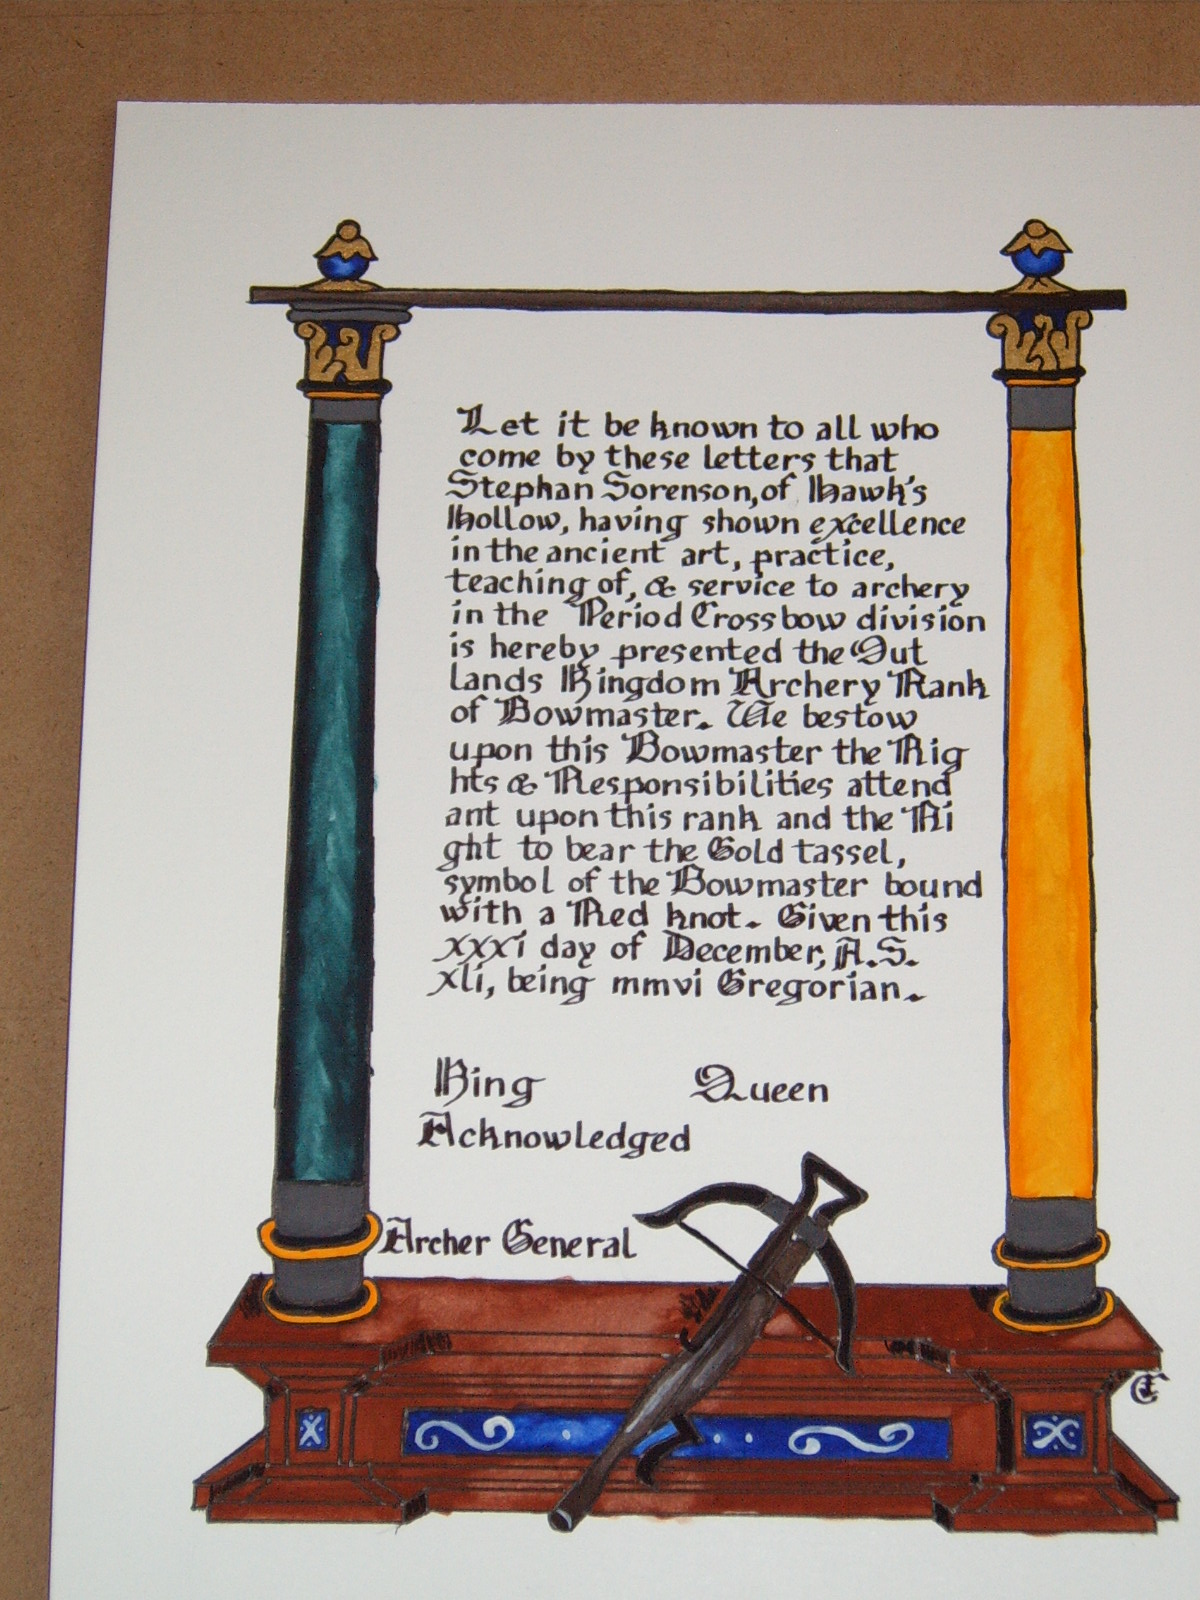 Let it be known to all who
come by these letters that
Stephan Sorenson, of Hawk's
Hollow, having shown excellence
in the ancient art, practice,
teaching of, & service to archery
in the Period Crossbow division
is hereby presented the Out
lands Kingdom Archery Rank
of Bowmaster. We bestow
upon this Bowmaster the Rig
hts & Responsibilities attend
ant upon this rank and the Ri
ght to bear the Gold tassel,
symbol of the Bowmaster bound
with a Red knot. Given this
xxxi day of December, A.S.
xli, being mmvi Gregorian.
King Queen
Acknowledged
Archer General